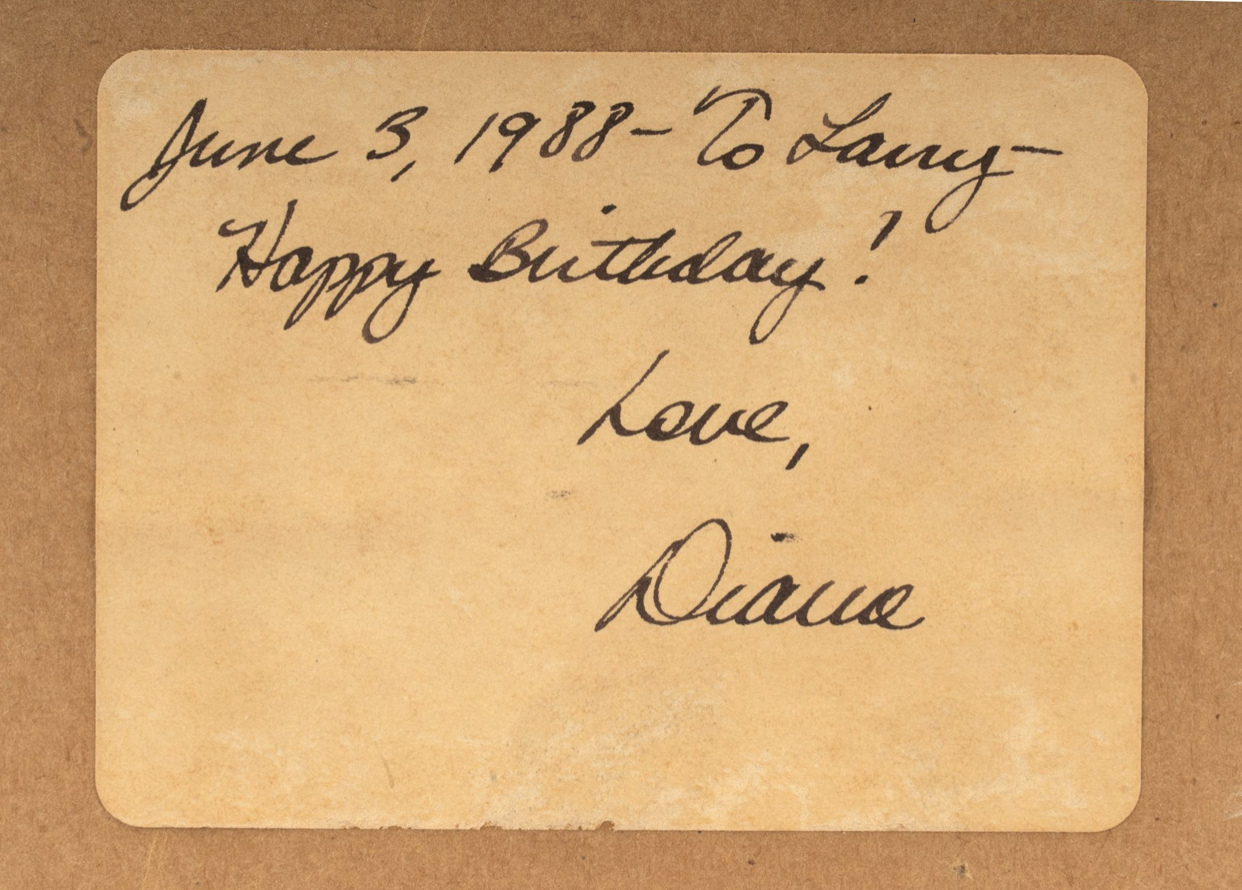 June 3, 1988 - To Larry -
Happy Birthday!
Love,
Diane